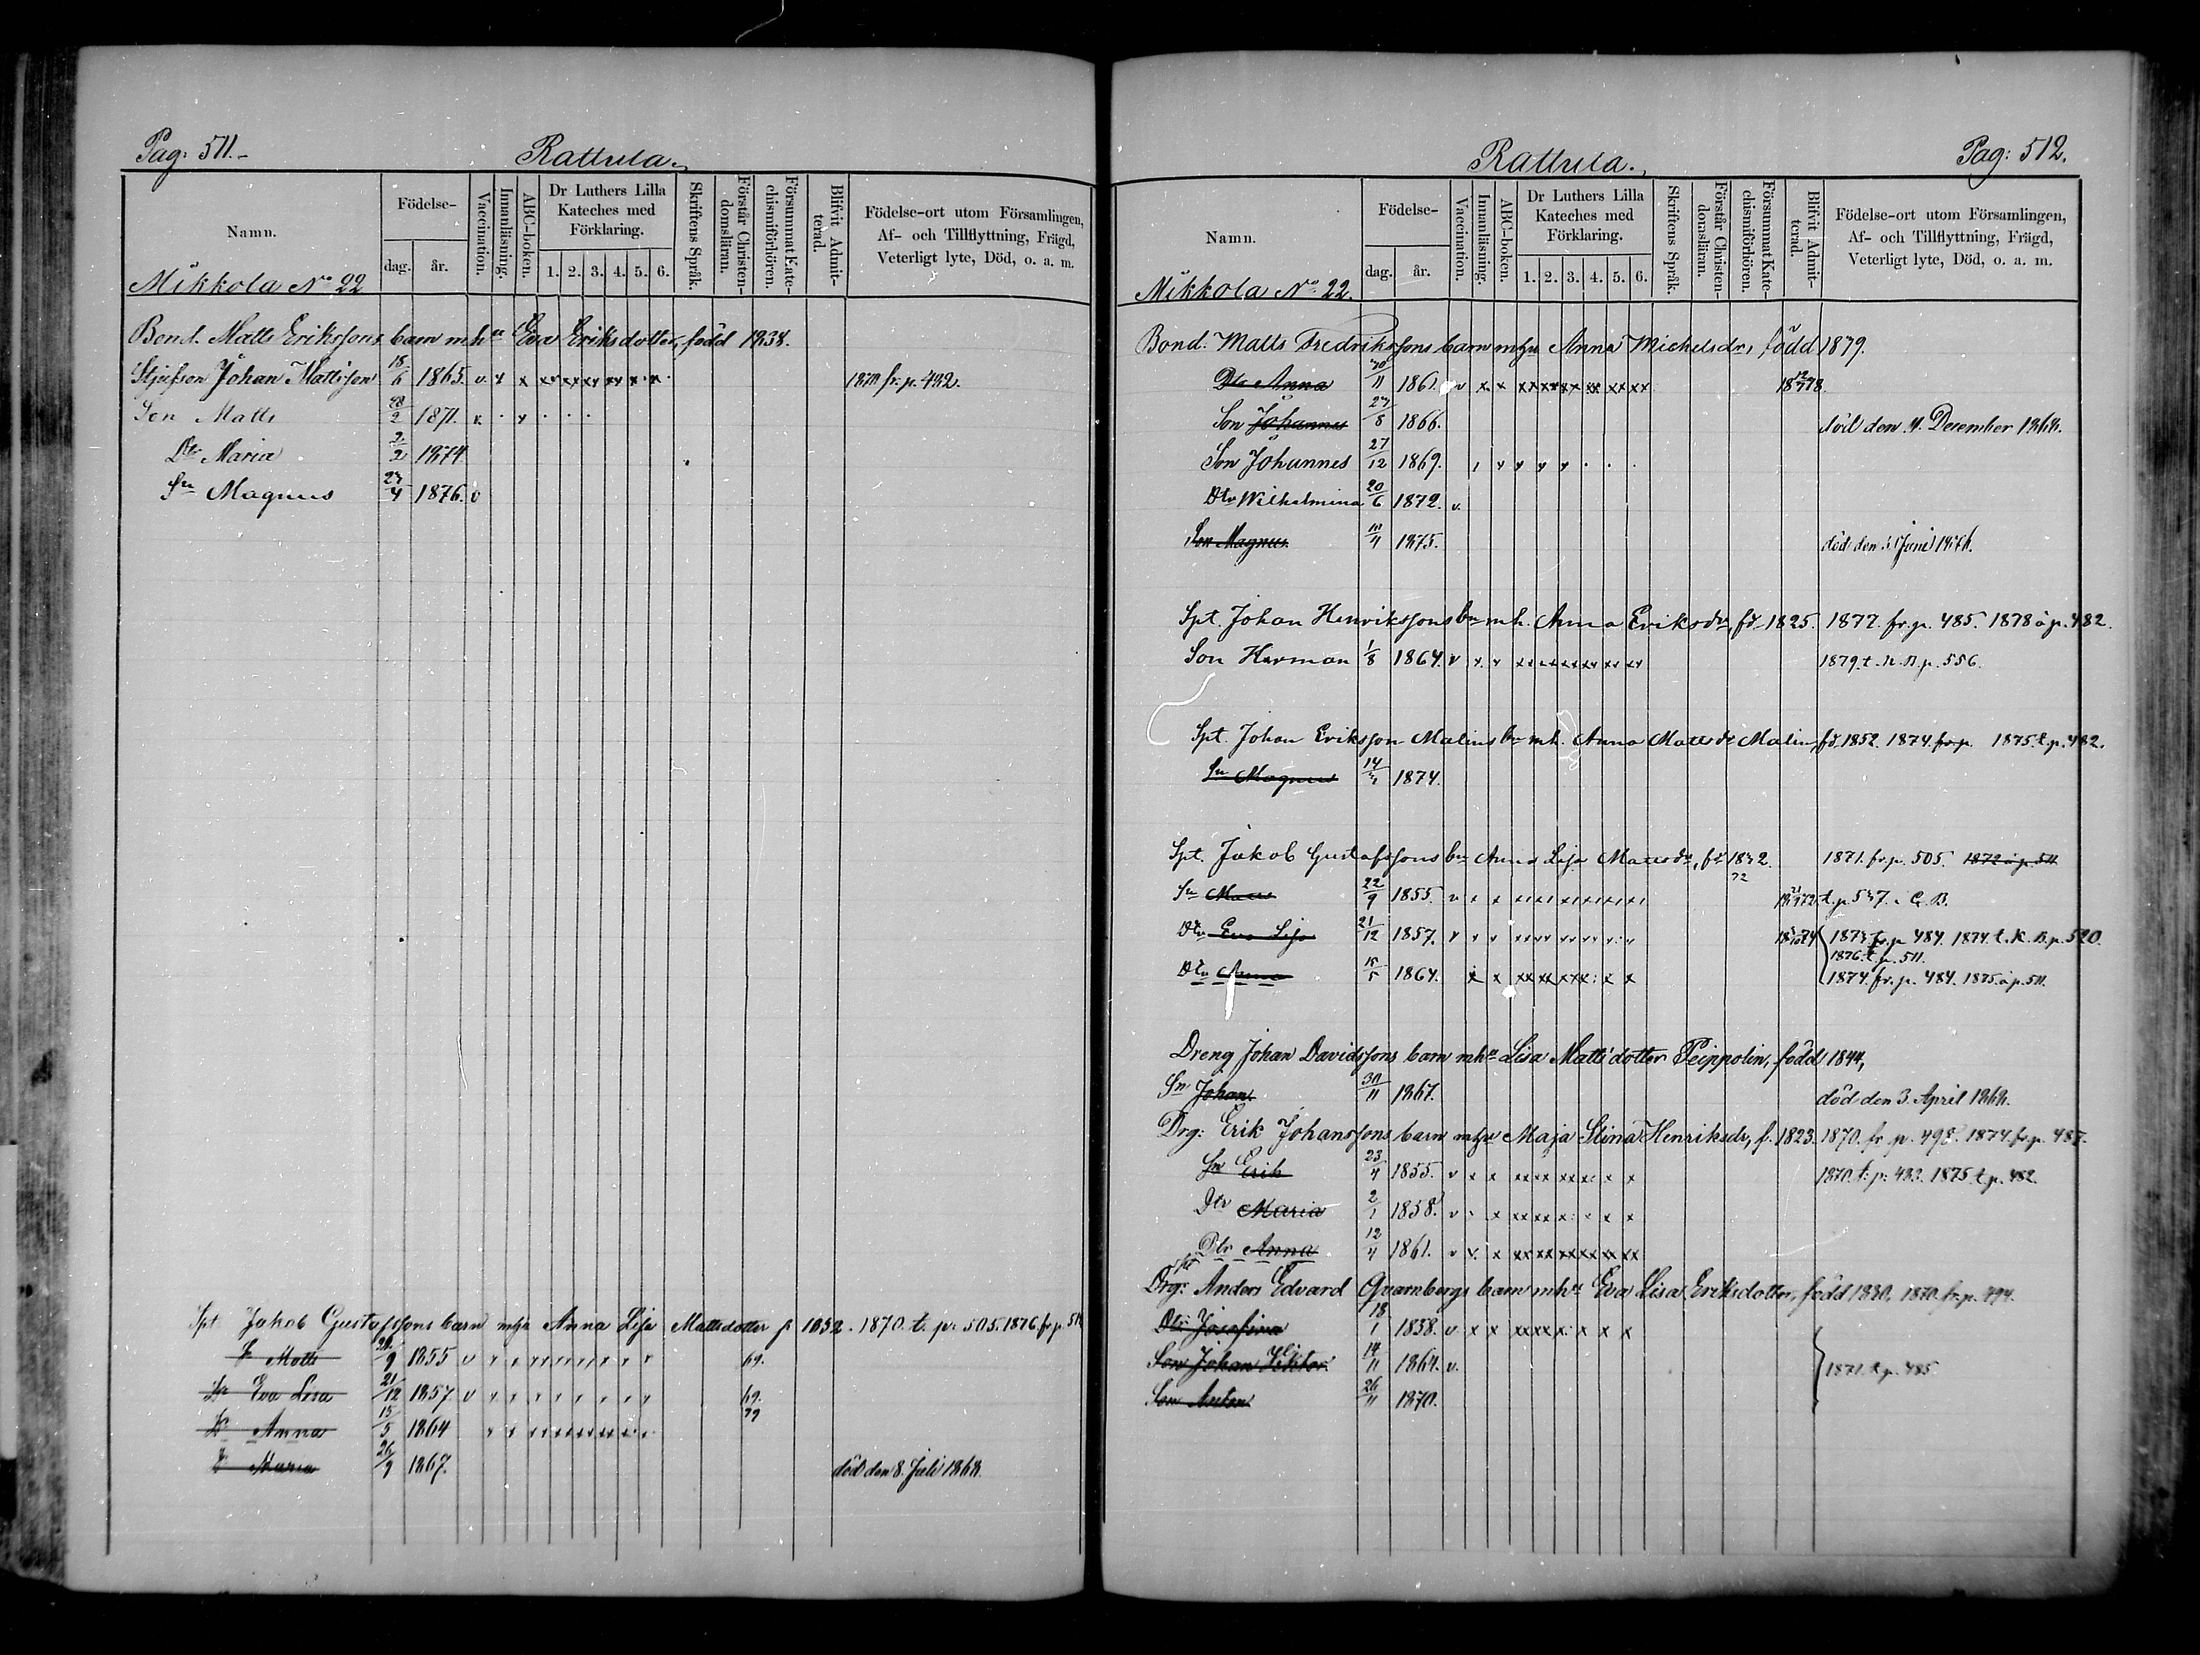 Pag: 511.
Rattula.
Namn.
Födelse-
dag. år.
Vaccination.
Innanläsning.
ABC-boken.
Dr Luthers Lilla Kateches med Förklaring.
1. 2. 3. 4. 5. 6.
Skriftens Språk.
Förstår Christendomsläran.
Försummat Katechismiförhören.
Blifvit Admitterad.
Födelse-ort utom Församlingen,
Af- och Tillflyttning, Frägd,
Veterligt lyte, Död, o. a. m.
Mikkola No 22
Bond. Matts Erikssons barn mhu Eva Eriksdotter, född 1838.
Stjufson Johan Mattsson 18/6 1865. v. x x xx xx xx xx x x
Son Matts 28/2 1871. v. x
Dtr Maria 2/2 1874
Sn Magnus 27/4 1876. v
Spt Jakob Gustafssons barn mhu Anna Lisa Mattsdotter f 1832. 1870. t. p. 505. 1876. fr. p. 511
Matts 22/9 1855 v 69.
Eva Lisa 21/12 1857. v 69.
Anna 15/5 1864
Maria 26/9 1867. död den 8. Juli 1868.
Pag: 512.
Rattula.
Namn.
Födelse-
dag. år.
Vaccination.
Innanläsning.
ABC-boken.
Dr Luthers Lilla Kateches med Förklaring.
1. 2. 3. 4. 5. 6.
Skriftens Språk.
Förstår Christendomsläran.
Försummat Katechismiförhören.
Blifvit Admitterad.
Födelse-ort utom Församlingen,
Af- och Tillflyttning, Frägd,
Veterligt lyte, Död, o. a. m.
Mikkola No 22.
Bond. Matts Fredrikssons barn mhu Anna Michelsdr, född 1879.
Dtr Anna 1861. v x x xx xx xx xx xx xx
Son Johannes 27/8 1866. död den 4. December 1868.
Son Johannes 27/12 1869.
Dtr Wilhelmina 20/6 1872. v.
Son Magnus 1875.
Spt. Johan Henrikssons bn mh. Anna Eriksdr, fd 1825. 1877. fr. p. 485. 1878 å p. 482.
Son Herman 1/8 1864. v x. x xx xx xx xx xx xx 1879. t. N. B. p. 556.
Spt. Johan Eriksson Malins bn mh. Anna Mattsdr Malin, fd. 1852. 1874. fr. p. 1875. t. p. 482.
Sn Magnus 1874.
Spt. Jakob Gustafssons bn Anna Lisa Mattsdr, fd 1832. 1871. fr. p. 505. 1872 å p. 511
Sn 22/9 1855. v
Dtr Eva Lisa 21/12 1857. 484. 1874. t. K. B. p. 520.
1876. t. p. 511.
Dtr Anna 15/5 1864. 1874. fr. p. 484. 1875 å p. 511.
Dreng Johan Davidssons barn mhu Lisa Mattsdotter Peippolin, född 1844,
Sn Johan 30/11 1867. död den 3. April 1868.
Drg: Erik Johanssons barn mhu Maja Stina Henriksdr, f. 1823. 1870. fr. p. 498. 1874. fr. p. 487.
Sn Erik 23/4 1855. v x x xx xx xx x x x 1875. t. p. 482.
Dtr Maria 2/1 1858. v
Dtr Anna 12/4 1861. v x. x xx xx xx xx xx xx
Drg: Anders Edvard Qvarnbergs barn mhu Eva Lisa Eriksdotter, född 1830, 1870. fr. p. 494.
Dtr Josefina 18/1 1858. v x x xx xx x x x x
Son Johan Viktor. 14/11 1864. v.
1871. t. p. 485
Son Anton. 26/11 1870.